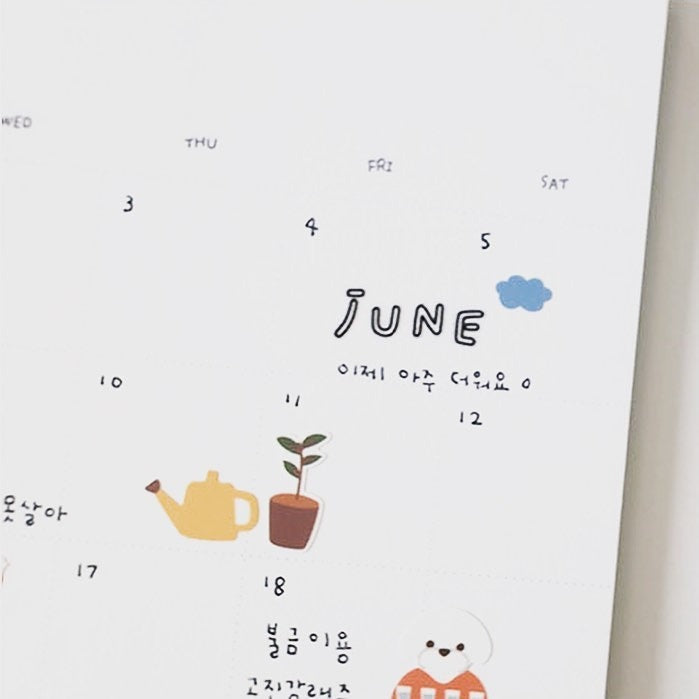 WED THU FRI SAT
3 4 5
JUNE
이제 아주 더워요 ㅇ
10 11 12
못살아
17 18
불금이용